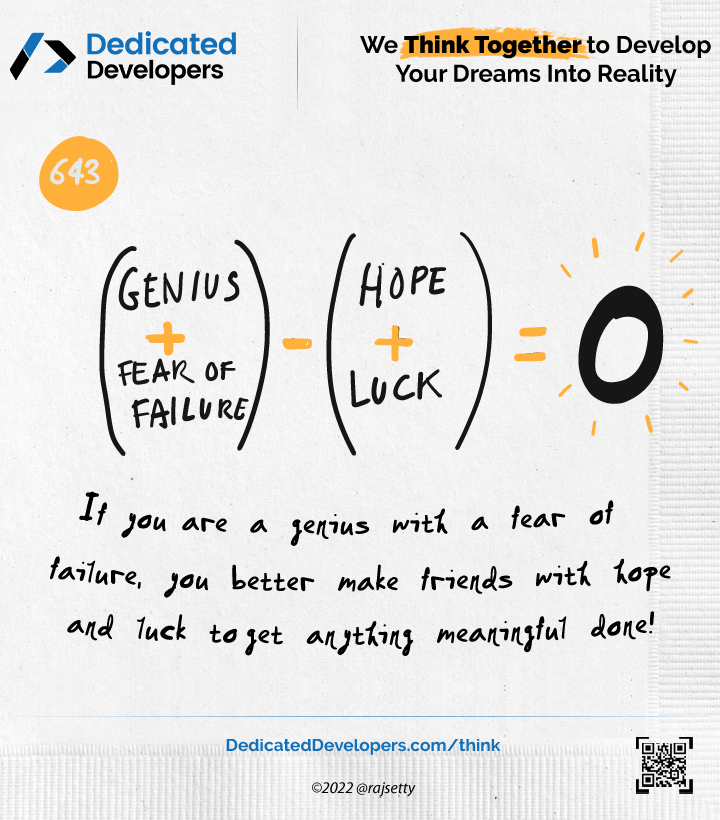 Dedicated
Developers
We Think Together to Develop
Your Dreams Into Reality
643
(GENIUS + FEAR OF FAILURE) - (HOPE + LUCK) = 0
If you are a genius with a fear of
failure, you better make friends with hope
and luck to get anything meaningful done!
DedicatedDevelopers.com/think
©2022 @rajsetty